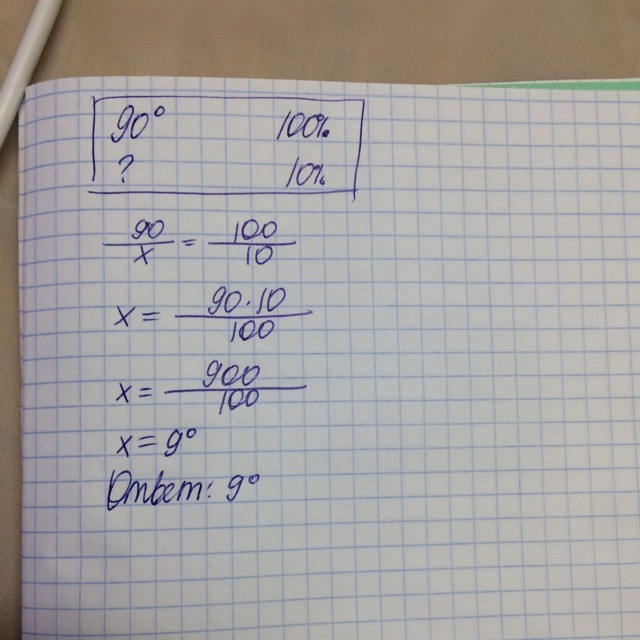 90° 100%
? 10%
90/x = 100/10
x = 90·10/100
x = 900/100
x = 9°
Ответ: 9°